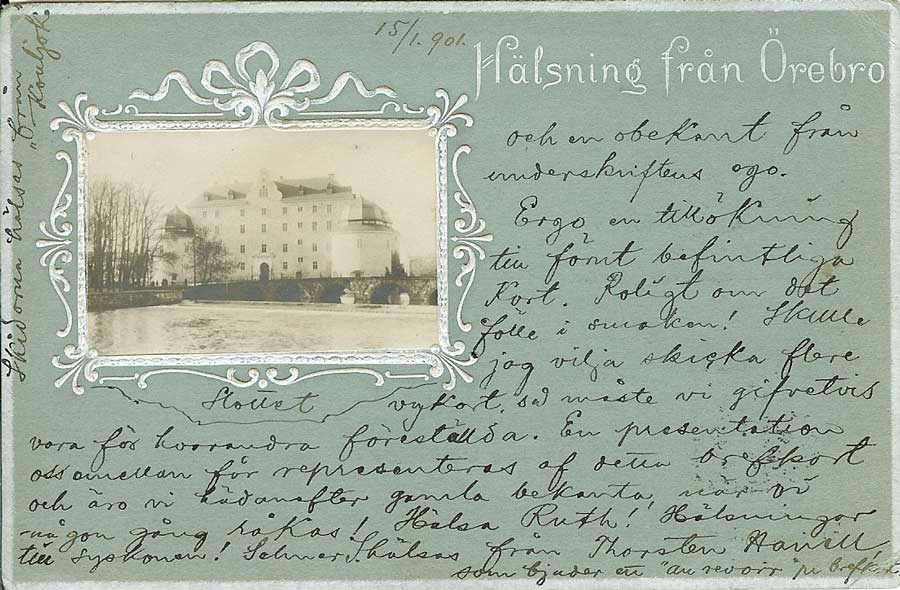 15/1. 901.
Hälsning från Örebro
och en obekant från
underskriftens ego.
Ergo en tillökning
till förut befintliga
Kort. Roligt om det
fölle i smaken! Skulle
jag vilja skicka flere
Slottet
vykort, så måste vi gifvetvis
vara för hvarandra föreställda. En presentation
oss emellan får representeras af detta brefkort
och äro vi hädanefter gamla bekanta, när vi
någon gång råkas! Hälsa Ruth! Hälsningar
till syskonen! Selmer S. hälsas från Thorsten
som bjuder ett "au revoir" pr brefkort
Skidoran hälsas från